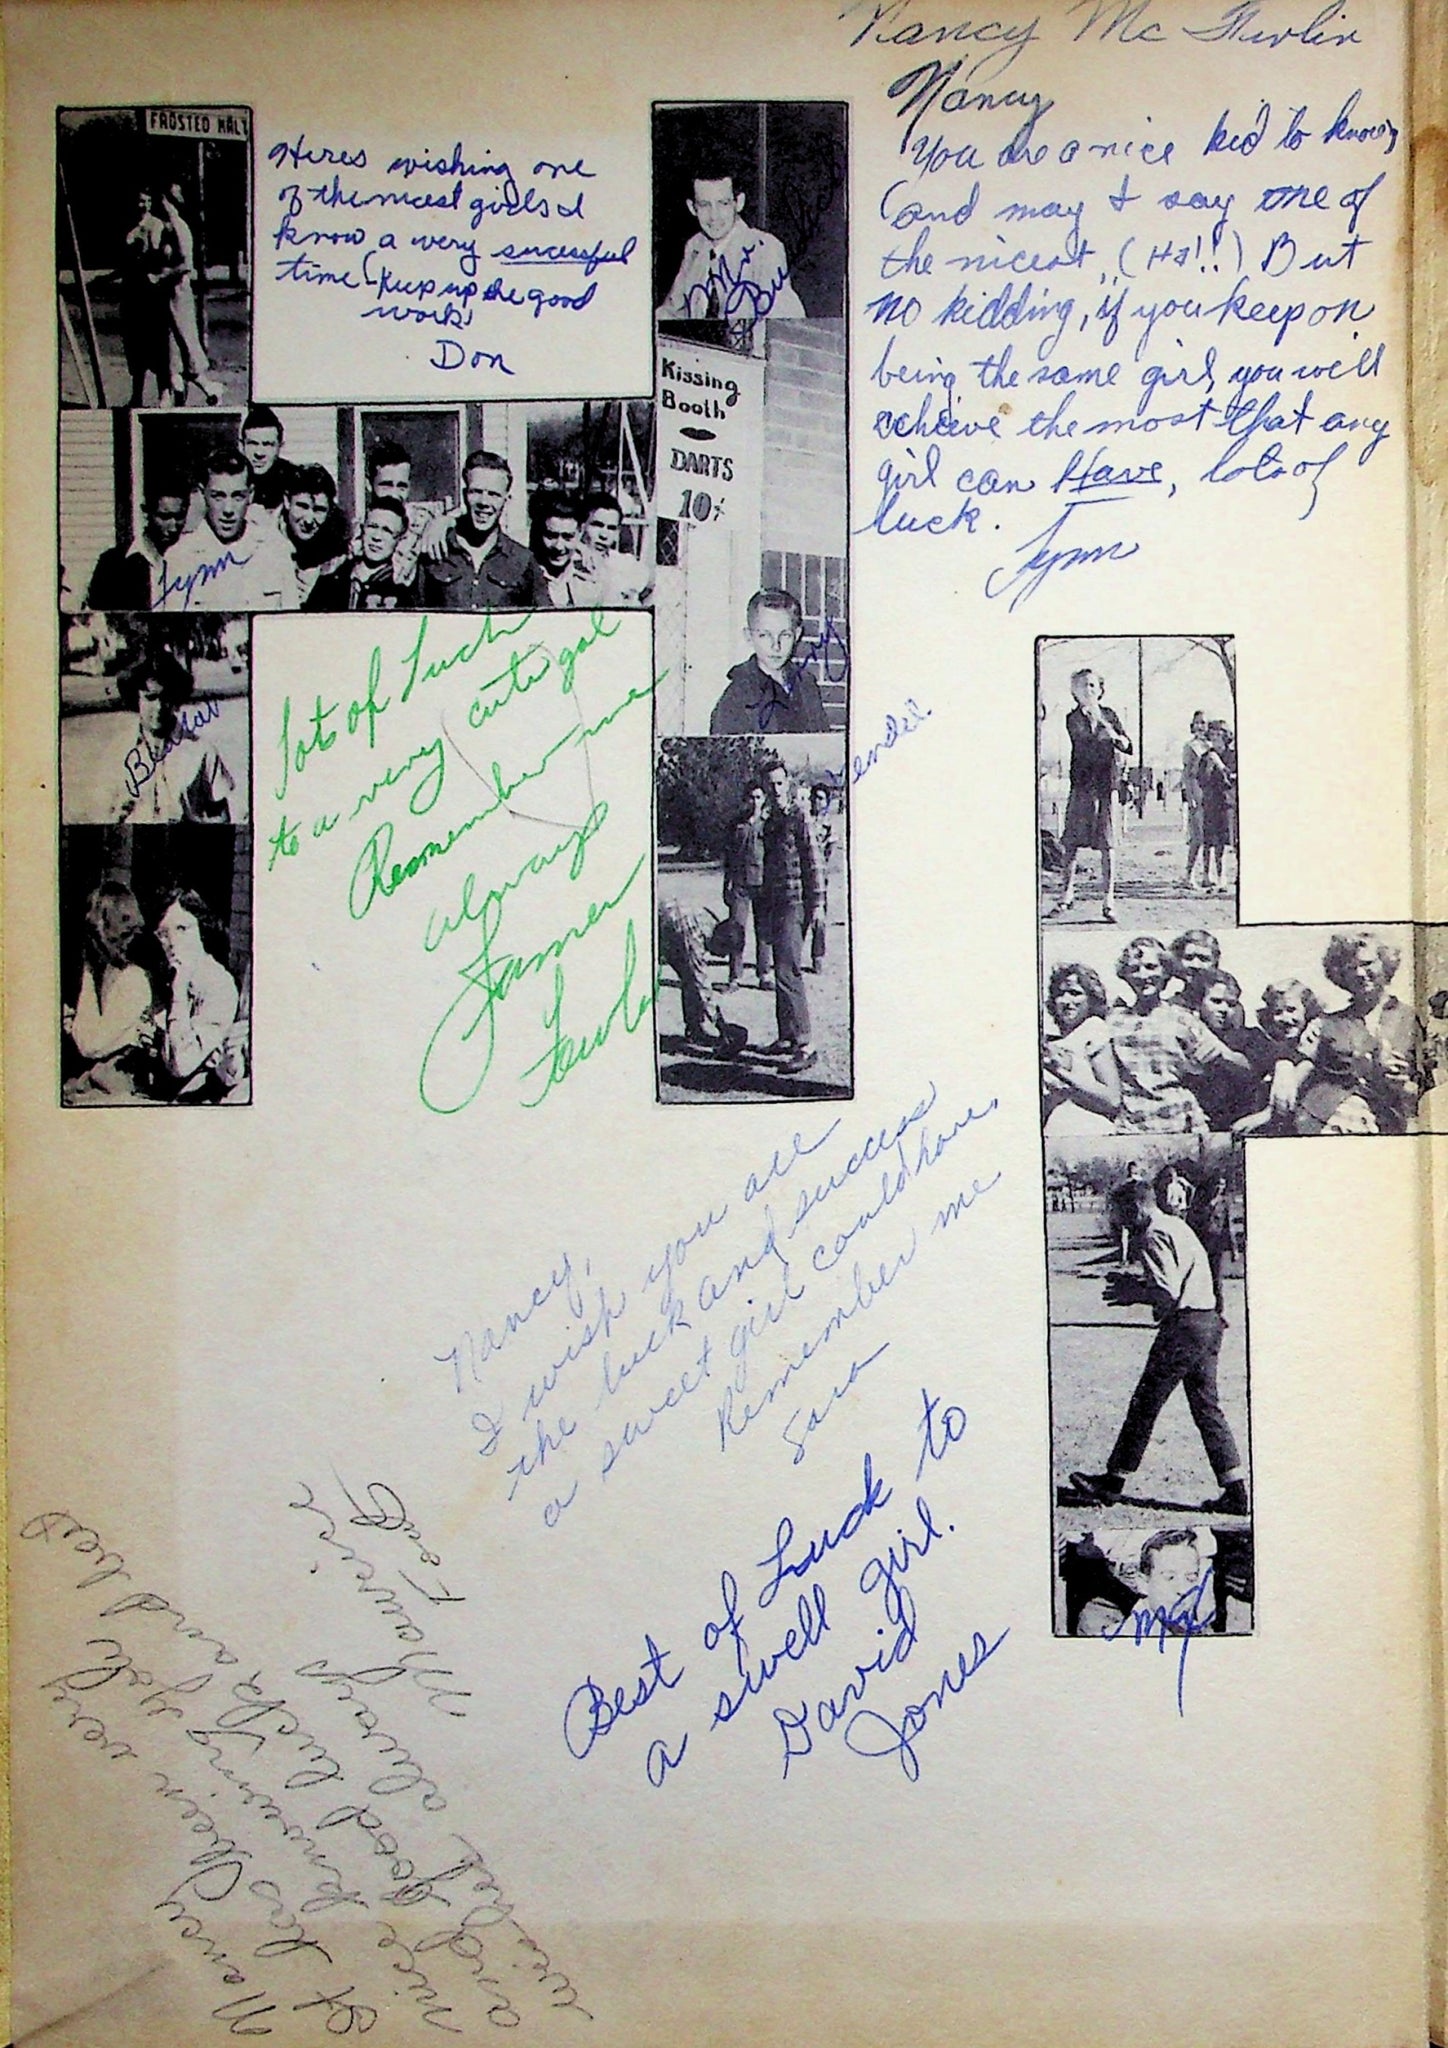 Nancy Mc
Nancy
You are a nice kid to know,
(and may I say one of
the nicest, (Ha!!) But
no kidding, if you keep on
being the same girl, you will
acheive the most that any
girl can Have, lots of
luck.
Lynn
FROSTED MALT
Heres wishing one
of the nicest girls I
know a very sucessful
time (Keep up the good
work)
Don
Mr.
Kissing
Booth
DARTS
10¢
Lynn
Larry
Wendel
Lots of Luck
to a very cute gal
Remember me
always
James
Nancy,
I wish you all
the luck and success
a sweet girl could have.
Remember me
Sara
Best of Luck to
a swell girl.
David
Jones
Nancy
It has bein very
nice knowing yah
and Good luck and best
wishes always